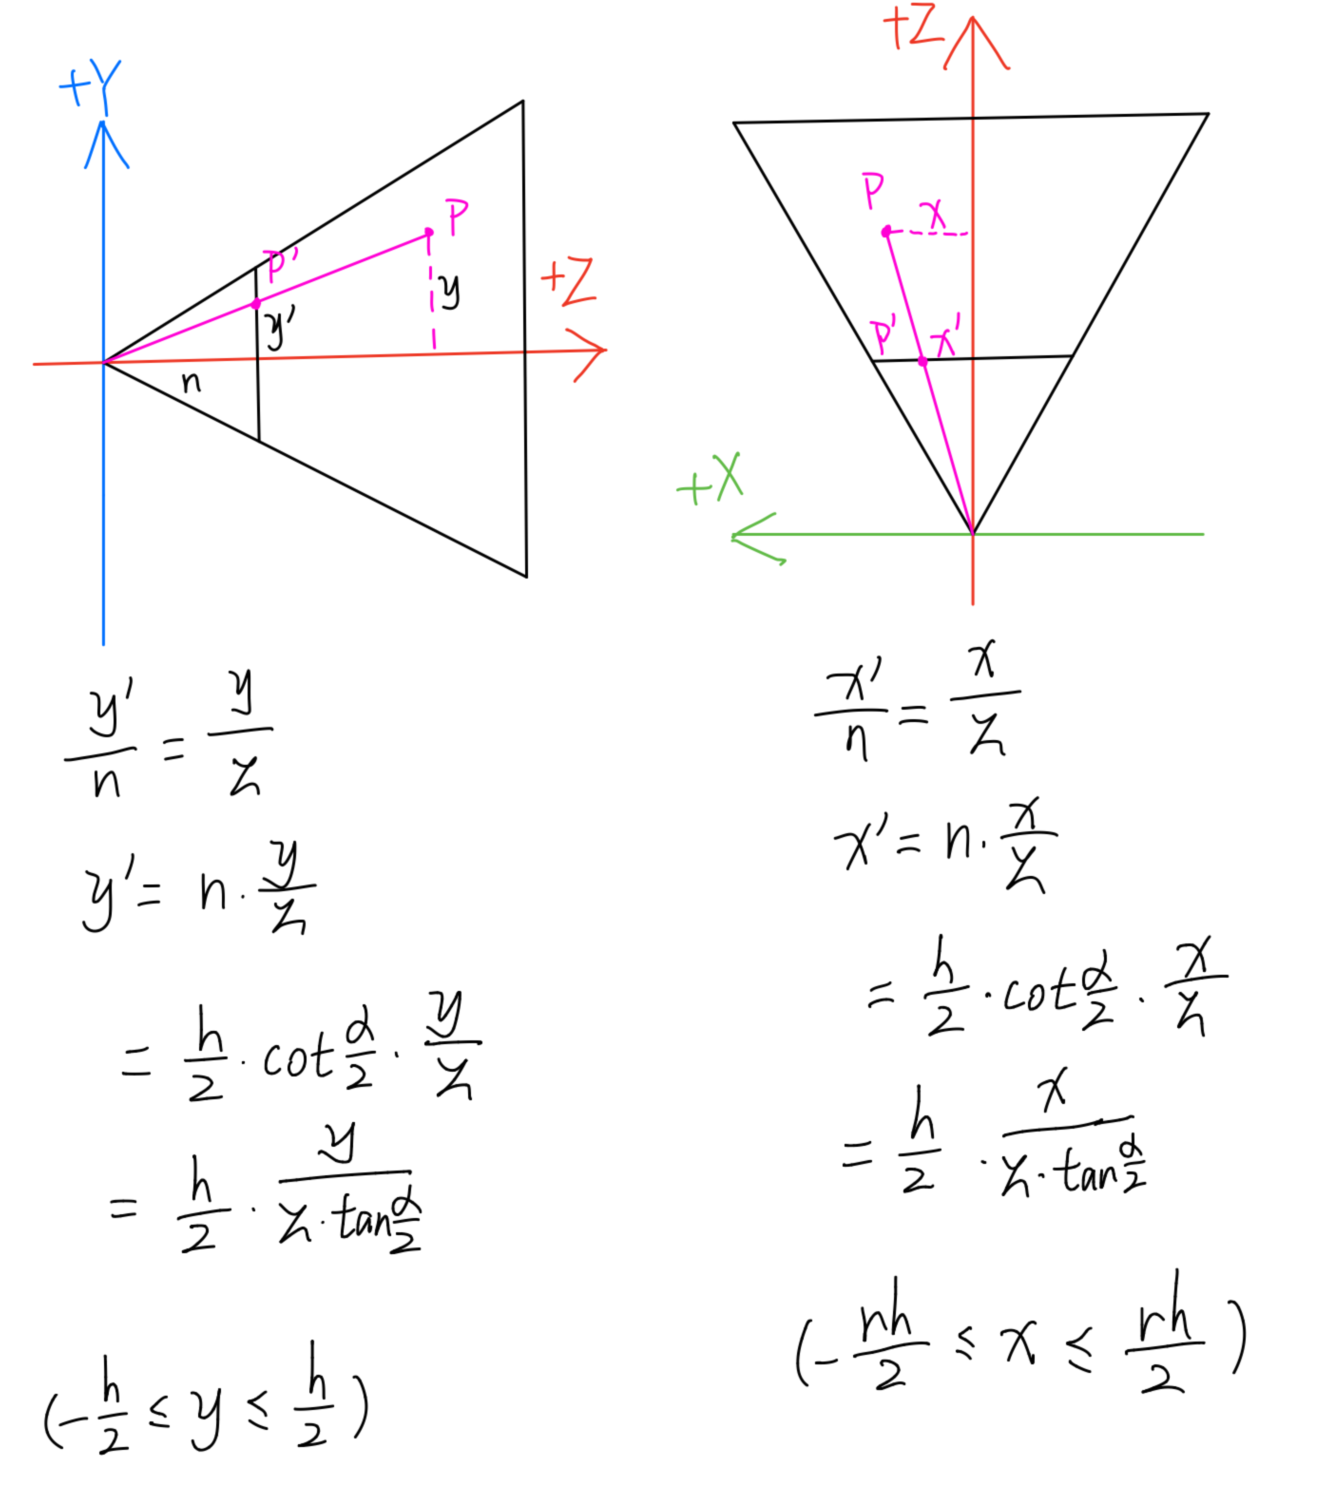 +Y
P
P'
y
y'
+Z
n
+Z
P
x
P'
x'
+X
y'/n = y/z
y' = n · y/z
= h/2 · cot α/2 · y/z
= h/2 · y/(z · tan α/2)
(-h/2 ≤ y ≤ h/2)
x'/n = x/z
x' = n · x/z
= h/2 · cot α/2 · x/z
= h/2 · x/(z · tan α/2)
(-rh/2 ≤ x ≤ rh/2)